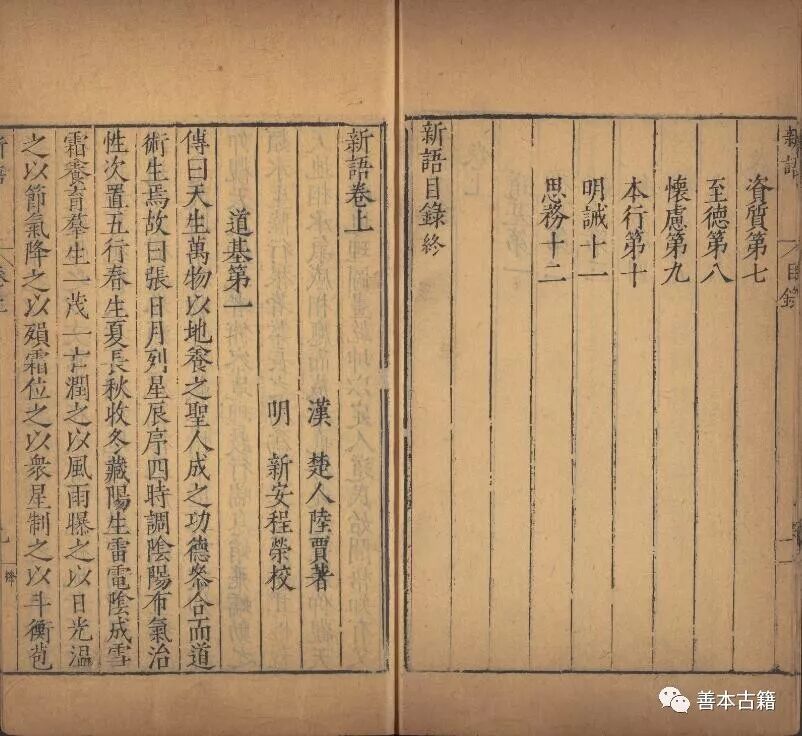 新語
目錄
資質第七
至德第八
懷慮第九
本行第十
明誡十一
思務十二
新語目錄終
新語卷上
漢 楚人陸賈著
明 新安程榮校
道基第一
傳曰天生萬物以地養之聖人成之功德叅合而道
術生焉故曰張日月列星辰序四時調陰陽布氣治
性次置五行春生夏長秋收冬藏陽生雷電陰成雪
霜養育羣生一茂一亡潤之以風雨曝之以日光温
之以節氣降之以殞霜位之以衆星制之以斗衡苞
善本古籍